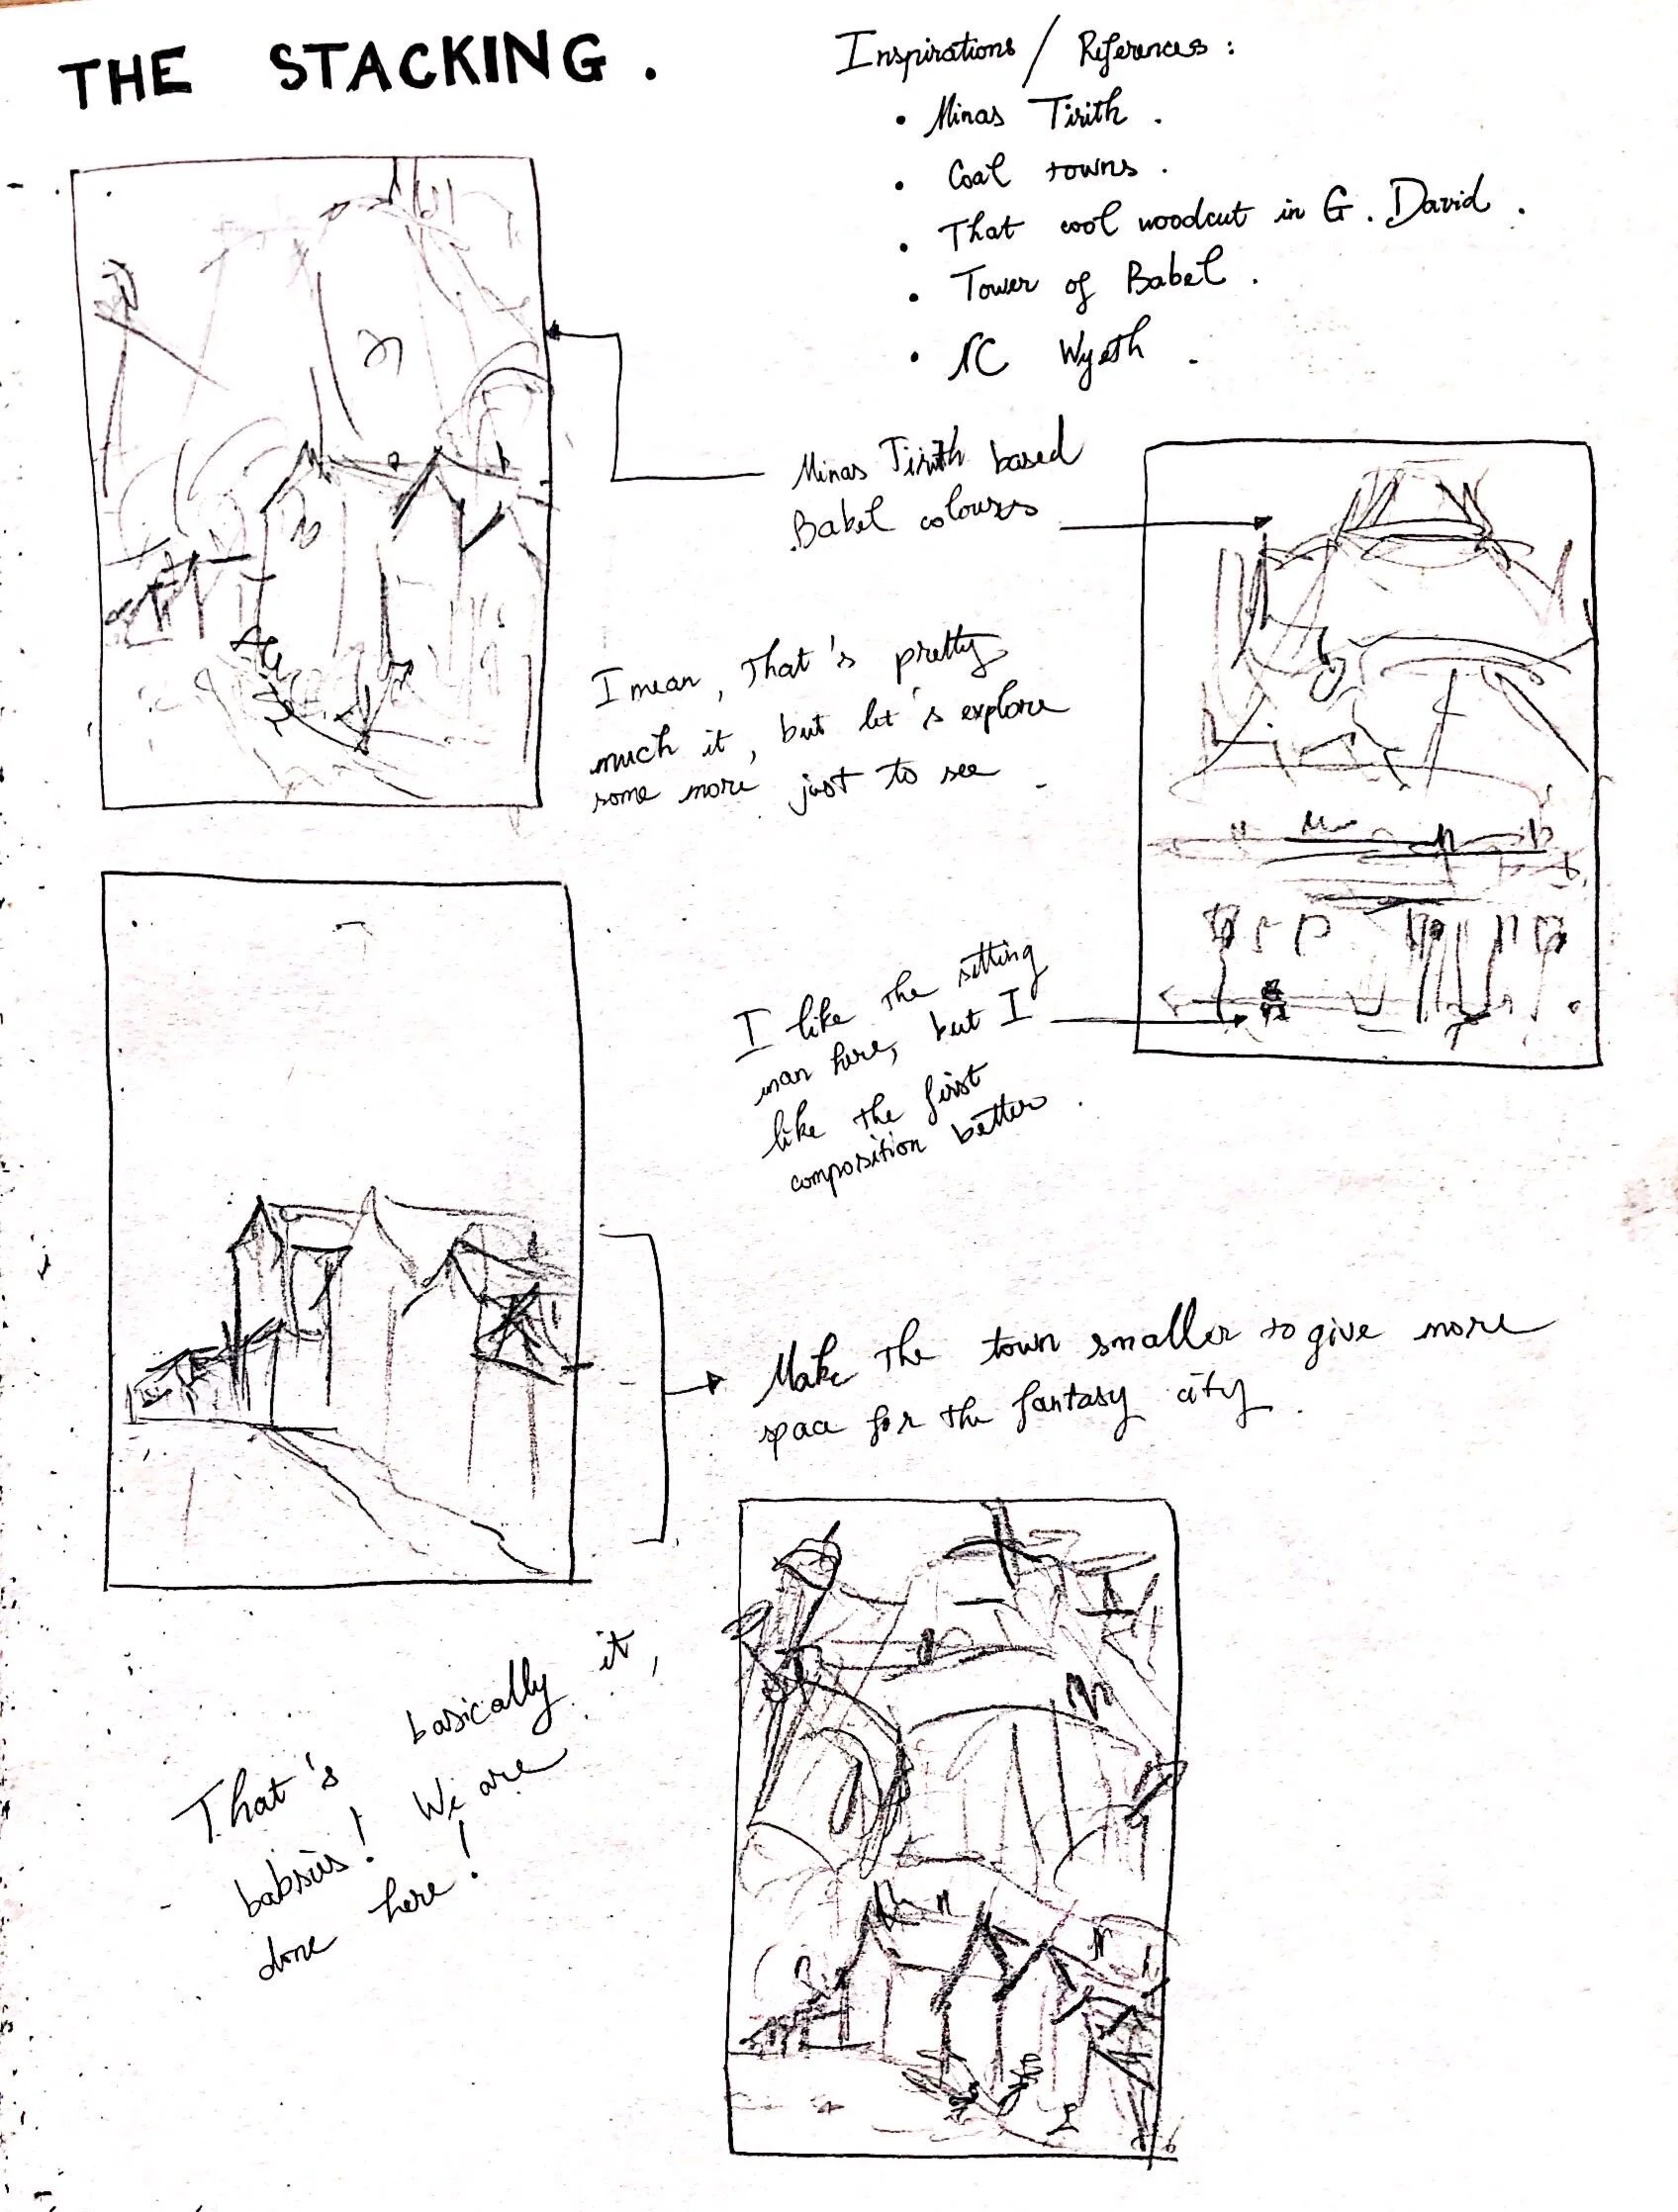 THE STACKING.
Inspirations / References :
• Minas Tirith .
• Coal towns .
• That cool woodcut in G. David .
• Tower of Babel .
• NC Wyeth .
Minas Tirith based
Babel colours
I mean, That's pretty
much it, but let's explore
some more just to see
I like the sitting
man here, but I
like the first
composition better .
Make the town smaller to give more
space for the fantasy city .
That's basically it,
babsiis! We are
done here!